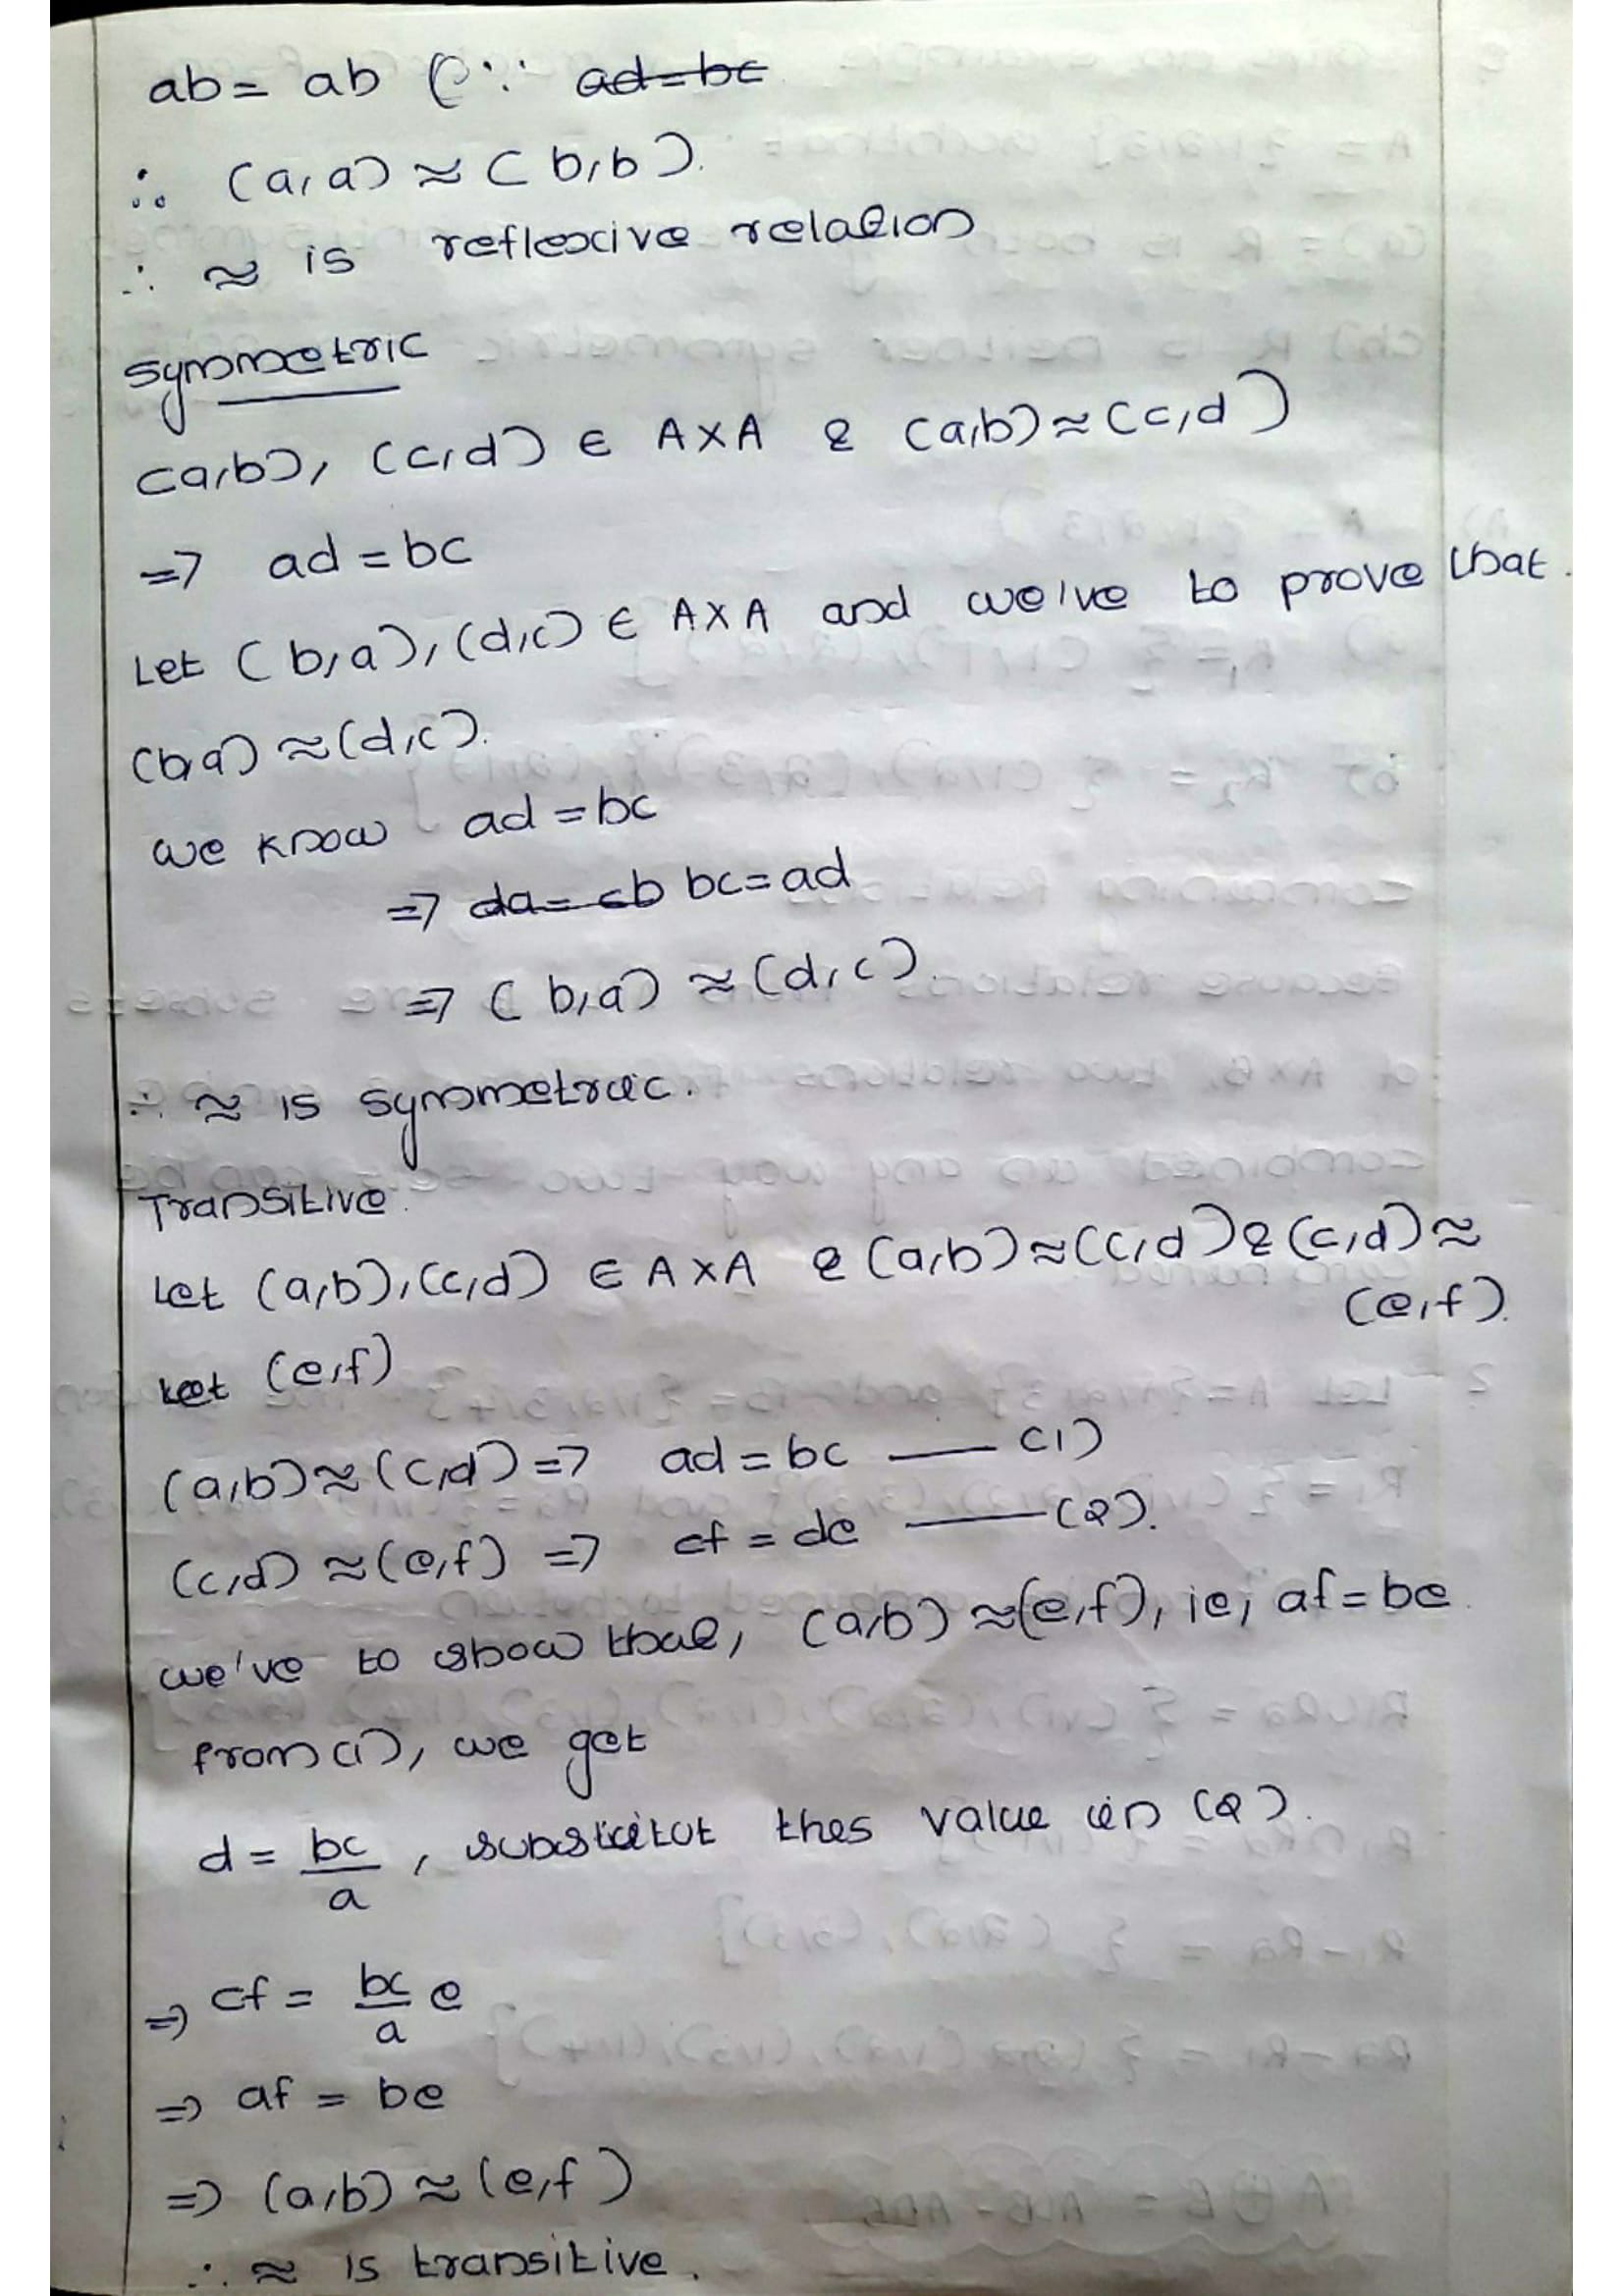 ab = ab (∵ ad=bc
∴ (a,a) ≈ (b,b).
∴ ≈ is reflexive relation
symmetric
(a,b), (c,d) ∈ A×A & (a,b)≈(c,d)
=> ad = bc
Let (b,a), (d,c) ∈ A×A and we've to prove that.
(b,a) ≈(d,c).
we know ad = bc
=> da= cb bc=ad
=> (b,a) ≈(d,c).
∴ ≈ is symmetric.
Transitive.
Let (a,b),(c,d) ∈ A×A & (a,b)≈(c,d)&(c,d)≈
(e,f).
Let (e,f)
(a,b)≈(c,d)=> ad = bc —— (1)
(c,d) ≈(e,f) => cf = de —— (2).
we've to show that, (a,b) ≈(e,f), ie; af = be.
from (1), we get
d = bc/a , substitut thes value in (2).
=> cf = bc/a e
=> af = be
=> (a,b) ≈ (e,f)
∴ ≈ is transitive.